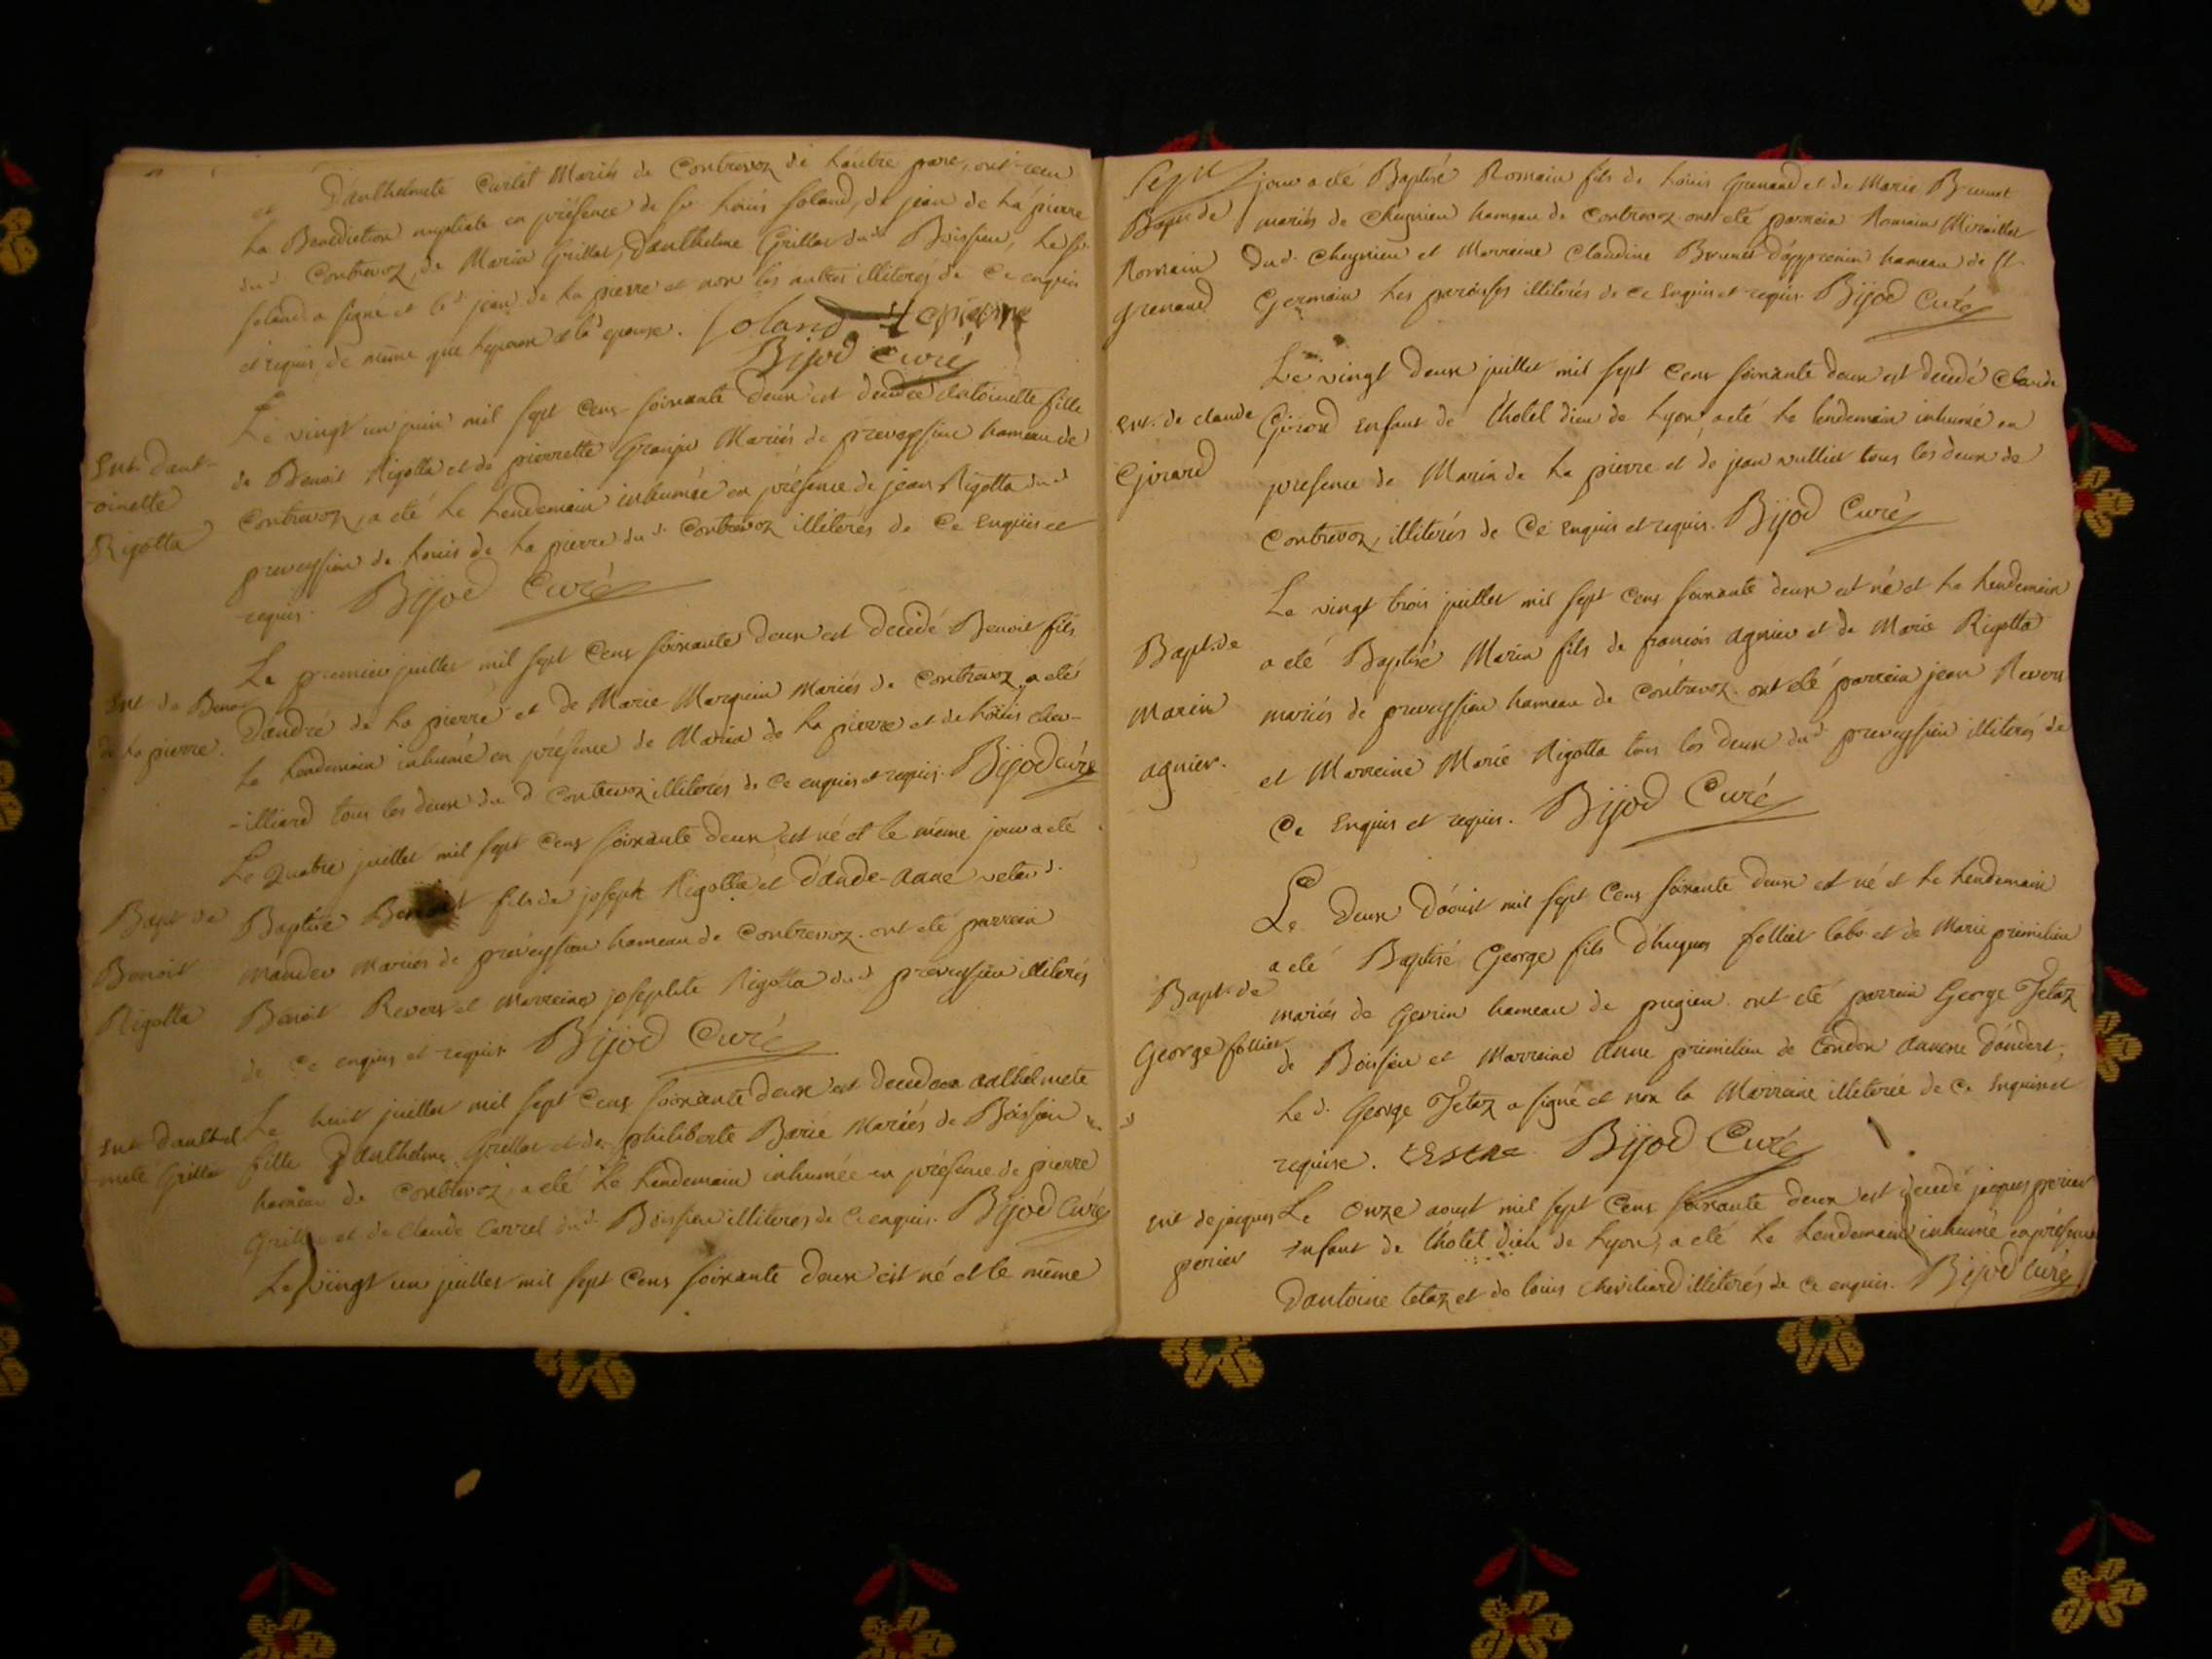 et D'anthelmete Curlet Mariés de Contrevoz de l'autre part, ont recu
La Benediction nuptiale en présence de sr Loüis Soland, de jean de La pierre
dud. Contrevoz, de Marin Grillat, D'anthelme Grillat dud. Boissieu, Le sr
Soland a signé et led. jean de La pierre et non les autres illiterés de Ce enquis
et requis, de même que L'epoux et la epouse. Soland
Bijod Curé
Le vingt un juin mil sept Cens soixante deux est decedée Antoinette fille
Ent. d'ant-
oinette
Rigotta
de Benoit Rigotta et de pierrette Granju Mariés de preveyssieu hameau de
Contrevoz, a eté Le Lendemain inhumée en présence de jean Rigotta dud.
preveyssieu de Louis de La pierre dud. Contrevoz illiterés de Ce Enquis et
requis. Bijod Curé
Le premier juillet mil sept Cens soixante deux est decedé Benoit fils
Ent. de Benoit
de La pierre.
D'andré de La pierre et de Marie Marquin Mariés de Contrevoz, a eté
Le Lendemain inhumé en présence de Marin de La pierre et de Loüis chev-
-illiard tous les deux du d Contrevoz illiterés de Ce enquis et requis. Bijod Curé
Le quatre juillet mil sept Cens soixante deux est né et le même jour a eté
Bapt. de
Benoit
Rigotta
Baptisé Benoit fils de joseph Rigotta et d'aude-anne
mariés de préveyssieu hameau de Contrevoz. ont eté parrein
Benoit Revers et Marreine josephte Rigotta dud. preveyssieu illiterés
de Ce enquis et requis Bijod Curé
Le huit juillet mil sept Cens soixante deux est decedée anthelmete
Ent. d'anthel
-mete Grillat
fille D'anthelme Grillat et de philiberte Barié Mariés de Boissieu
hameau de Contrevoz, a eté Le Lendemain inhumée en présence de pierre
Grillat et de Claude Carrel dud. Boissieu illiteres de Ce enquis. Bijod Curé
Le vingt un juillet mil sept Cens soixante deux est né et le même
Sept
jour a eté Baptisé Romain fils de Loüis Grenaud et de Marie Brunet
Bapt. de
Romain
grenaud
mariés de Cheynieu hameau de Contrevoz. ont eté parrein Romain Miraillet
Dud. Cheynieu et Marreine Claudine Brunet d'appremin hameau de St.
Germain Les paroisses illiterés de Ce Enquis et requis. Bijod Curé
Le vingt deux juillet mil sept Cens soixante deux est decedé Claude
Ent. de claude
Girard
Girard Enfant de L'hotel dieu de Lyon, a eté Le lendemain inhumé en
presence de Marin de La pierre et de jean vulliet tous les deux de
Contrevoz, illiterés de Ce Enquis et requis. Bijod Curé
Le vingt trois juillet mil sept Cens soixante deux est né et Le Lendemain
Bapt. de
Marin
agnier.
a eté Baptisé Marin fils de françois agnier et de Marie Rigotta
mariés de preveyssieu hameau de Contrevoz. ont eté parrein jean Revers
et Marreine Marie Rigotta tous les deux dud. preveyssieu illiterés de
Ce Enquis et requis. Bijod Curé
Le Deux D'aoust mil sept Cens soixante deux est né et Le Lendemain
Bapt. de
George folliet
a eté Baptisé George fils d'hugues folliet labo. et de Marie primilieu
mariés de Gevrin hameau de pugieu. ont eté parrein George Tetaz
de Boissieu et Marreine Anne primilieu de Condon Annexe D'andert,
Le d. George Tetaz a signé et non la Marreine illiterée de Ce Enquise et
requise. Bijod Curé
Ent. de jacques
perier
Le Onze aoust mil sept Cens soixante deux est decedé jacques perier
Enfant de L'hotel dieu de Lyon, a eté Le Lendemain inhumé en présence
D'antoine tetaz et de louis Chevilliard illiterés de Ce enquis. Bijod Curé